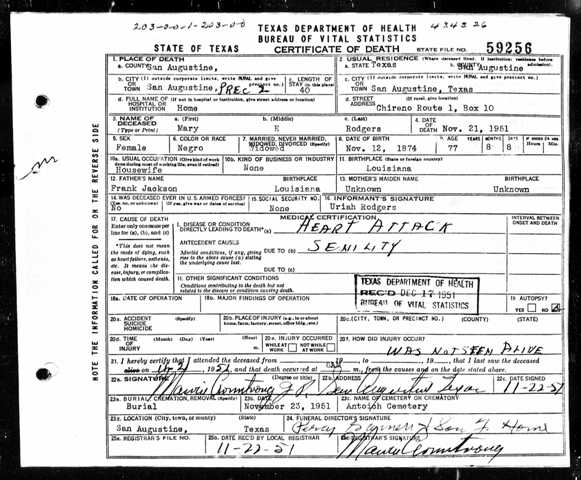 203-00-1-203-00
TEXAS DEPARTMENT OF HEALTH
BUREAU OF VITAL STATISTICS
434326
STATE OF TEXAS
CERTIFICATE OF DEATH
STATE FILE NO. 59256
1. PLACE OF DEATH
a. COUNTY San Augustine,
2. USUAL RESIDENCE (Where deceased lived. If institution: residence before admission).
a. STATE Texas
b. COUNTY San Augustine
b. CITY (If outside corporate limits, write RURAL and give precinct no.) OR TOWN San Augustine, PREC 2
c. LENGTH OF STAY 40
c. CITY (If outside corporate limits, write RURAL and give precinct no.) OR TOWN San Augustine, Texas
d. FULL NAME OF HOSPITAL OR INSTITUTION (If not in hospital or institution, give street address or location) Home
d. STREET ADDRESS (If rural, give location) Chireno Route 1, Box 10
3. NAME OF DECEASED (Type or Print)
a. (First) Mary
b. (Middle) E
c. (Last) Rodgers
4. DATE OF DEATH Nov. 21, 1951
5. SEX Female
6. COLOR OR RACE Negro
7. MARRIED, NEVER MARRIED, WIDOWED, DIVORCED (Specify) Widowed
8. DATE OF BIRTH Nov. 12, 1874
9. AGE 77
Months 8
Days 8
Hours
Min.
10a. USUAL OCCUPATION (Give kind of work done during most of working life, even if retired) Housewife
10b. KIND OF BUSINESS OR INDUSTRY None
11. BIRTHPLACE (State or foreign country) Louisiana
12. FATHER'S NAME Frank Jackson Louisiana
13. MOTHER'S MAIDEN NAME Unknown Unknown
14. WAS DECEASED EVER IN U.S. ARMED FORCES? (Yes, no, or unknown) (If yes, give war or dates of service) No
15. SOCIAL SECURITY NO. None
16. INFORMANT'S SIGNATURE Uriah Rodgers
17. CAUSE OF DEATH
Enter only one cause per line for (a), (b), and (c)
MEDICAL CERTIFICATION
INTERVAL BETWEEN ONSET AND DEATH
I. DISEASE OR CONDITION DIRECTLY LEADING TO DEATH* (a) HEART ATTACK
*This does not mean the mode of dying, such as heart failure, asthenia, etc. It means the disease, injury, or complication which caused death.
ANTECEDENT CAUSES
Morbid conditions, if any, giving rise to the above cause (a) stating the underlying cause last.
DUE TO (b) SENILITY
DUE TO (c)
II. OTHER SIGNIFICANT CONDITIONS
Conditions contributing to the death but not related to the disease or condition causing death.
TEXAS DEPARTMENT OF HEALTH
REC'D DEC 17 1951
BUREAU OF VITAL STATISTICS
18a. DATE OF OPERATION
18b. MAJOR FINDINGS OF OPERATION
19. AUTOPSY?
YES NO
20a. ACCIDENT SUICIDE HOMICIDE (Specify)
20b. PLACE OF INJURY (e.g., in or about home, farm, factory, street, office bldg., etc.)
20c. (CITY, TOWN, OR PRECINCT NO.) (COUNTY) (STATE)
20d. TIME OF INJURY
20e. INJURY OCCURRED
WHILE AT WORK NOT WHILE AT WORK
20f. HOW DID INJURY OCCUR?
WAS NOT SEEN ALIVE
21. I hereby certify that I attended the deceased from 19 , to , 19 , that I last saw the deceased
alive on 11-21, 1951, and that death occurred at m., from the causes and on the date stated above.
22a. SIGNATURE (Degree or title)
22b. ADDRESS San Augustine Texas
22c. DATE SIGNED 11-22-51
23a. BURIAL, CREMATION, REMOVAL (Specify) Burial
23b. DATE November 23, 1951
23c. NAME OF CEMETERY OR CREMATORY Antoich Cemetery
23d. LOCATION (City, town, or county) (State) San Augustine, Texas
24. FUNERAL DIRECTOR'S SIGNATURE
25a. REGISTRAR'S FILE NO.
25b. DATE REC'D BY LOCAL REGISTRAR 11-22-51
25c. REGISTRAR'S SIGNATURE
NOTE THE INFORMATION CALLED FOR ON THE REVERSE SIDE